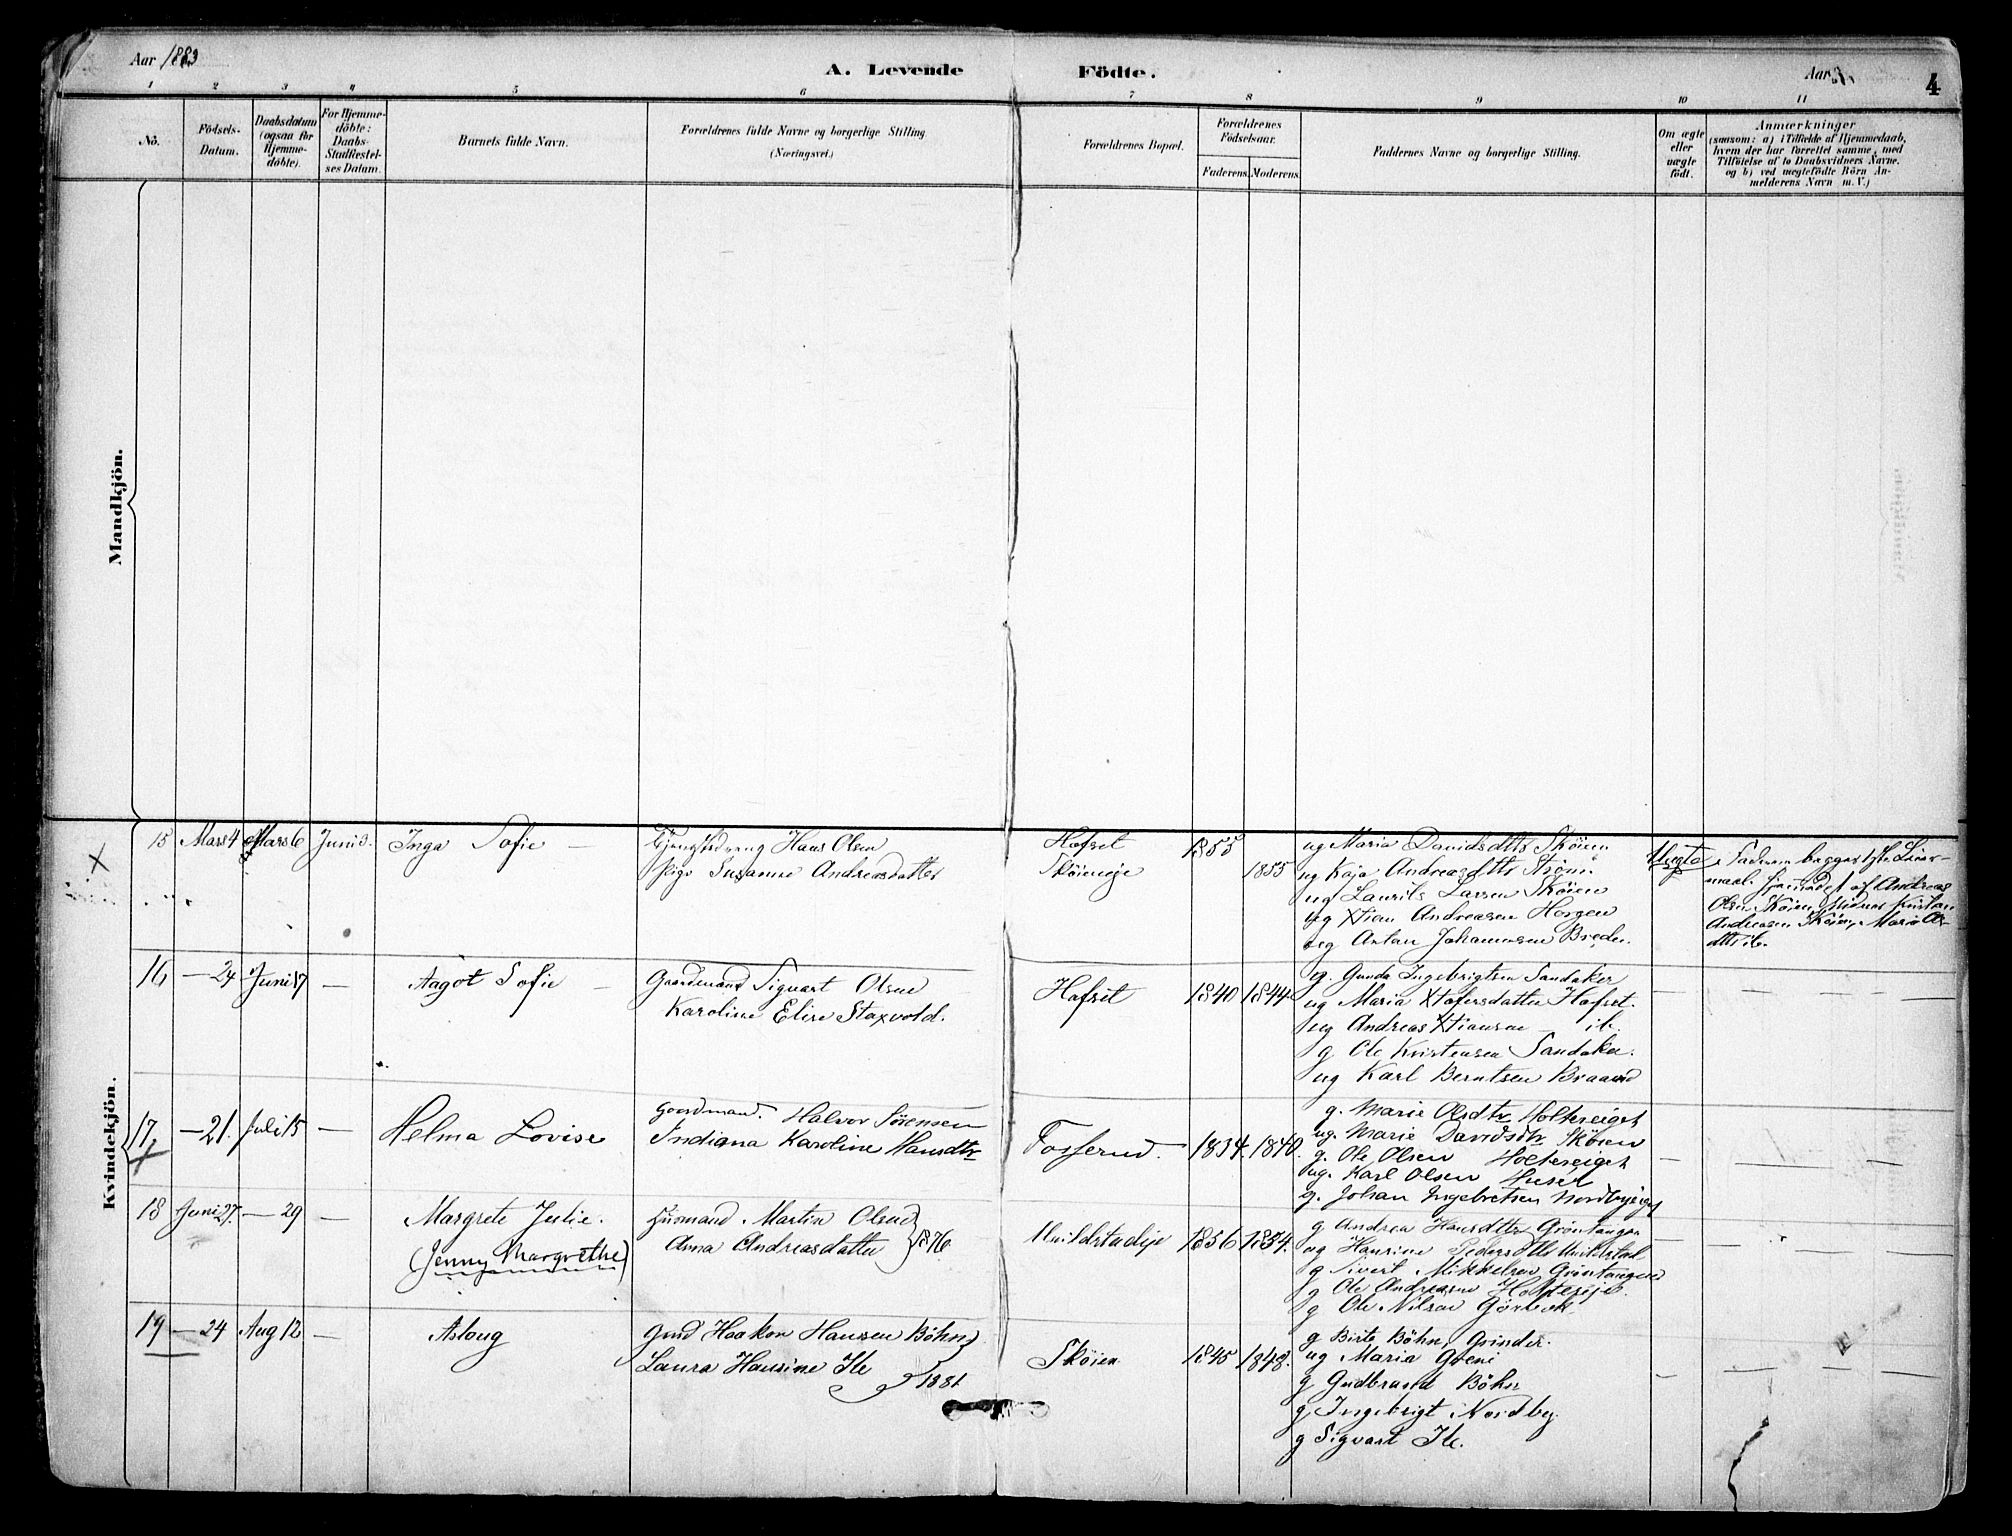 Aar 1883
A. Levende Födte.
Aar
4
1 2 3 4 5 6 7 8 9 10 11
No.
Födsels-Datum.
Daabsdatum (ogsaa for Hjemme-döbte).
For Hjemme-döbte: Daabs-Stadfæstel-ses Datum.
Barnets fulde Navn.
Forældrenes fulde Navne og borgerlige Stilling
(Næringsvei.)
Forældrenes Bopæl.
Forældrenes Födselsaar.
Faderens. Moderens.
Faddernes Navne og borgerlige Stilling.
Om ægte eller uægte födt.
Anmærkninger
(saasom: a) i Tilfælde af Hjemmedaab,
hvem der har forrettet samme, med
Tilföielse af to Daabsvidners Navne.
og b) ved uægtefödte Börn An-
melderens Navn m. V.)
Mandkjön.
Kvindekjön.
15 Mars 4 Mars 6 Juni 3. Inga Sofie —
Hans Olsen
Pige Susanne Andreasdatter
Hafset
Skøieneje
1855
1855
ug Maria Davidsdtr Skøien
ug Kaja Andreasdtr Strøm.
ug Laurits Larsen Skøien
ug Xtian Andreasen Horgen
ug Anton Johannesen Breden.
Uægte
Faderen begges 1ste Leier-
maal. af Andreas
Olsen Skøien, Kristian
Andreasen Skøien, Maria Ols-
dtr ib.
16 — 24 Juni 17 — Aagot Sofie —
Gaardmand Sigvart Olsen
Karoline Elise Staxvold.
Hafset 1840 1844
g. Gunda Ingebrigtsen Sandaker
ug Maria Xtofersdatter Hafset.
ug Andreas Xtiansen — ib.
g Ole Kristensen Sandaker.
ug Karl Berntsen Braaend
17, — 21. Juli 15 — Helma Lovise
Goardmand. Halvor Sørensen
Indiana Karoline Hansdtr
Fosserud. 1834. 1840.
g. Marie Olsdtr Holtereiget
ug. Marie Davidsdtr Skøien
g. Ole Olsen Holtereiget
ug. Karl Olsen Huset
g. Johan Ingebretsen Nordbyeiget
18 Juni 27. — 29 — Margrete Julie.
(Jenny Margrethe)
Husmand. Martin Olsen
Anna Andreasdatter } 1876
1856 1854.
g Andrea Hansdtr Grøntangen
ug Hansine Pedersdtr
g Sivert Mikkelsen Grøntangen
g Ole Andreasen Holtereje.
g Ole Nilsen
19 — 24 Aug 12 — Aslaug
Gmd Haakon Hansen Böhn
Laura Hansine Ile 1881
Skøien 1845 1848.
g Birte Böhn, Grinder.
ug Maria Goeni
g Gudbrand Böhn
g Ingebrigt Nordby.
g Sigvart Ile.